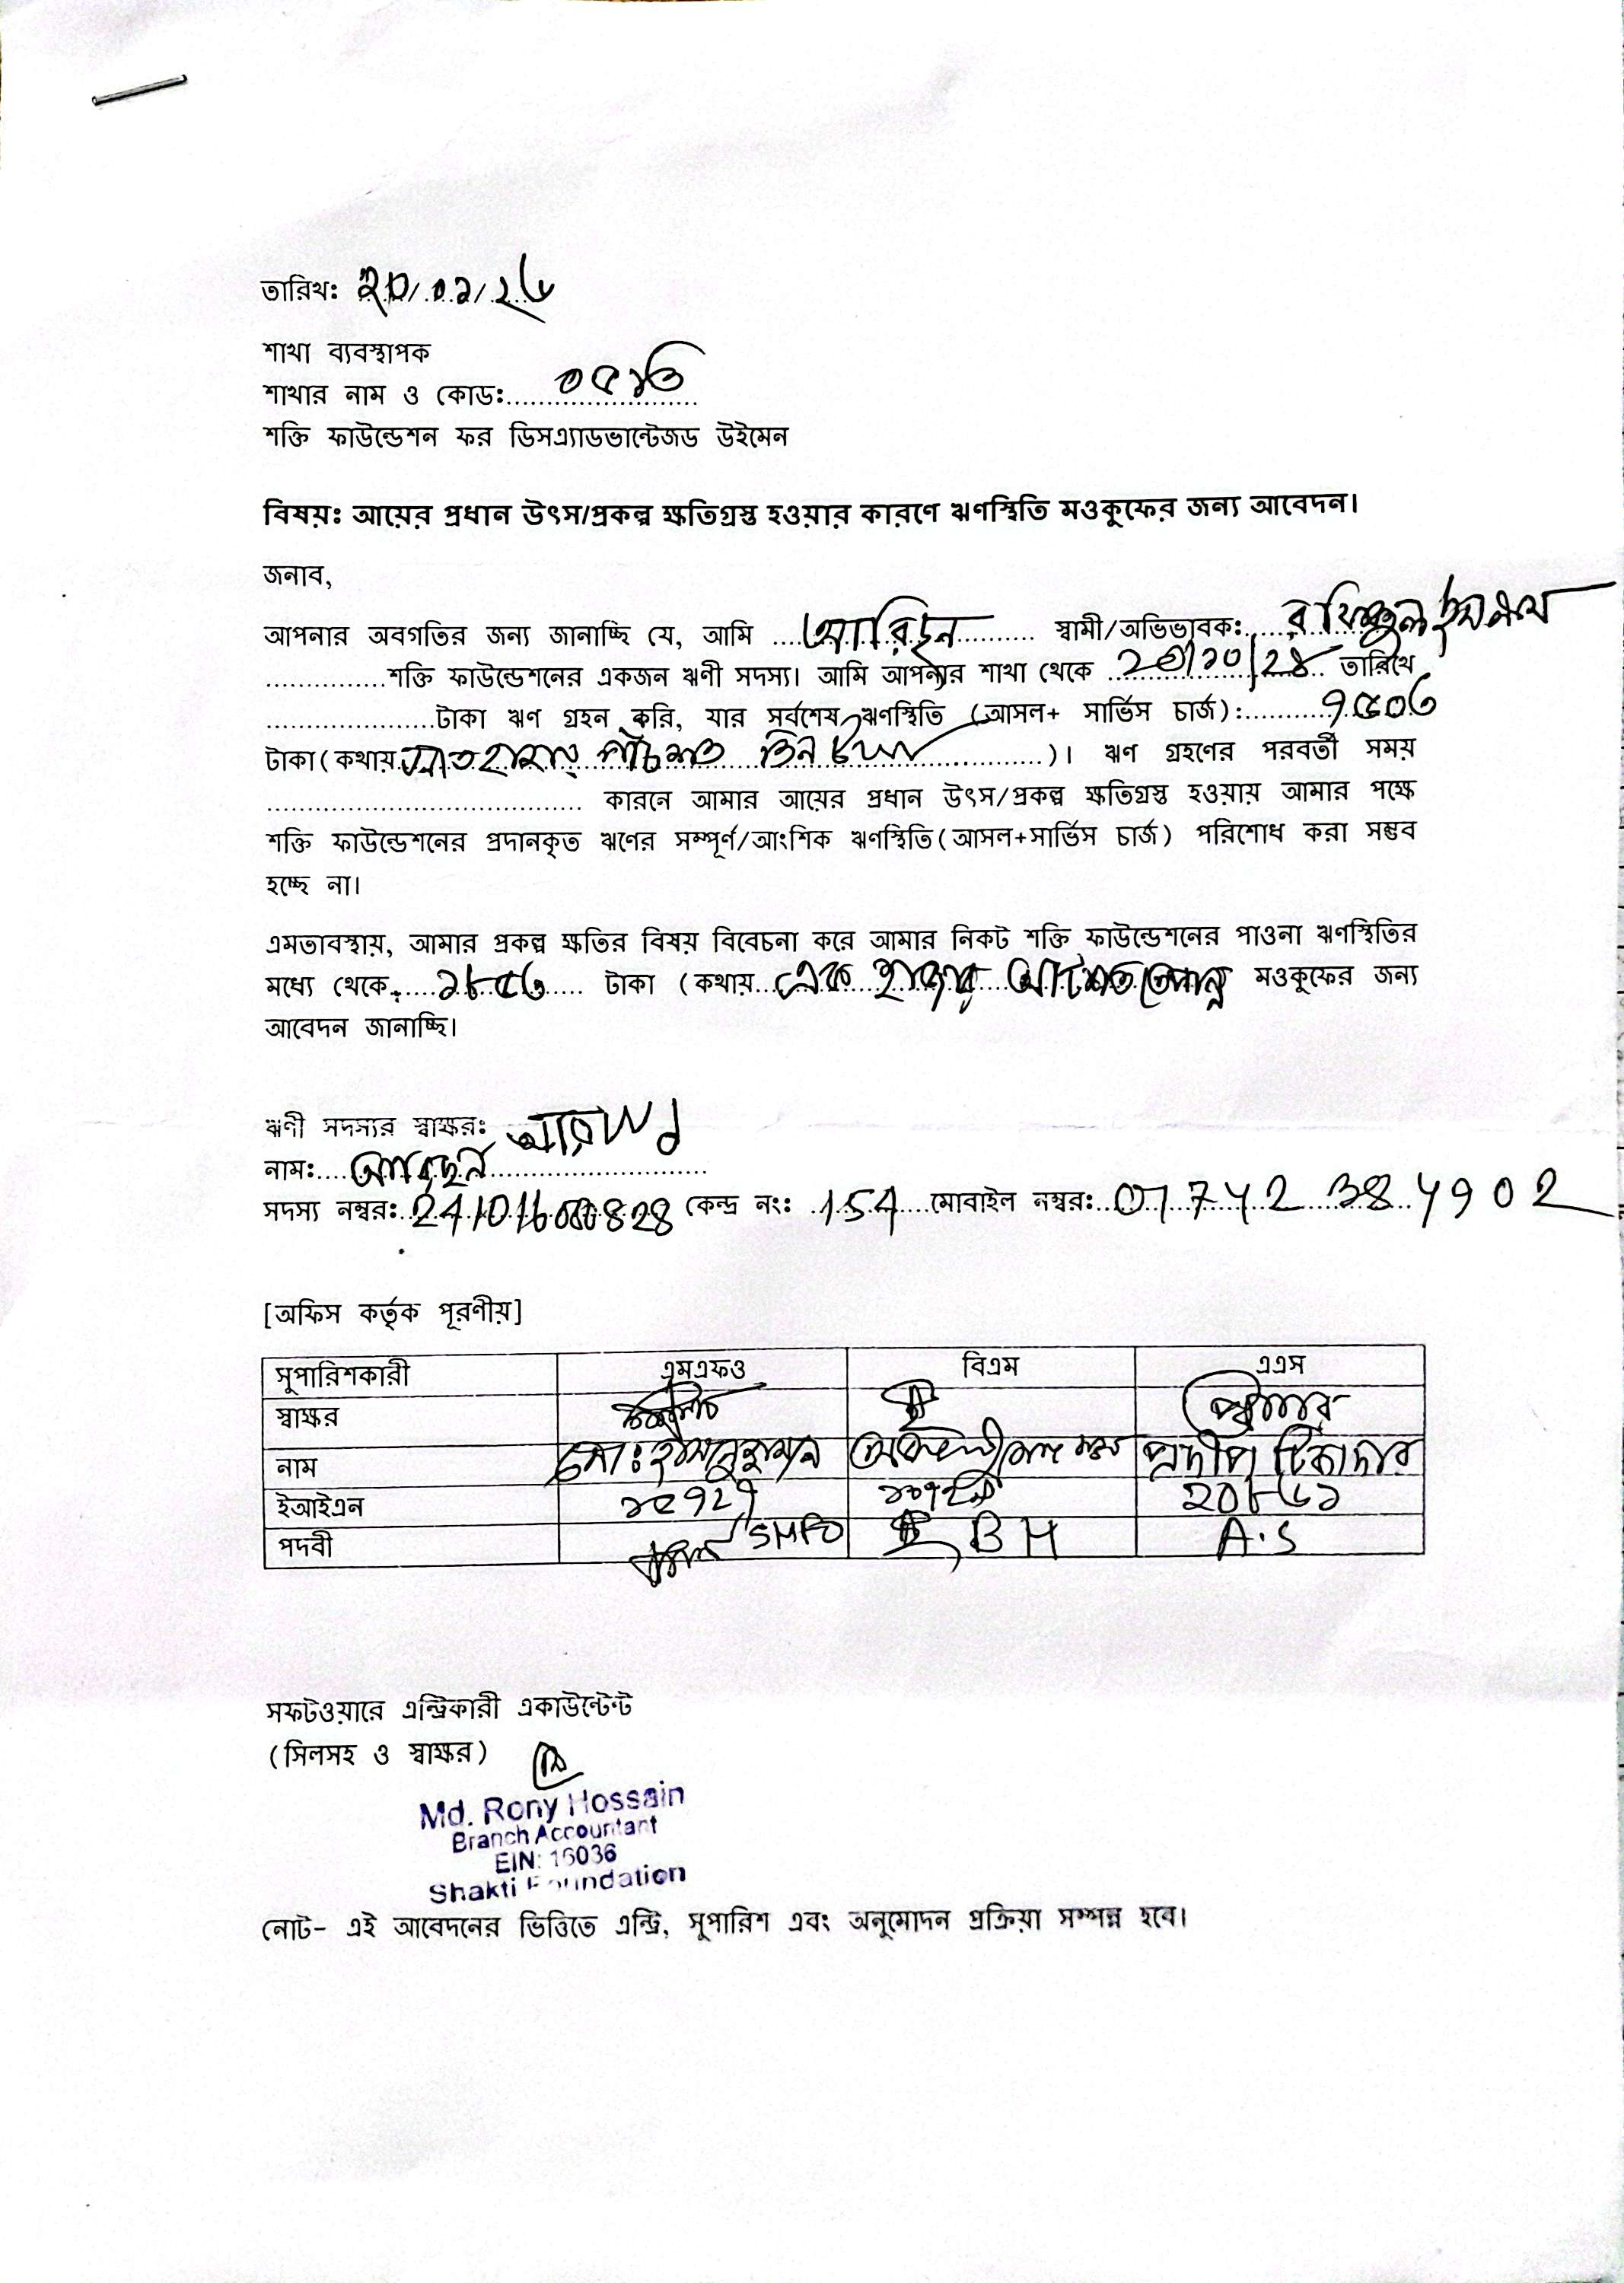 তারিখঃ ২০/০১/২৬
শাখা ব্যবস্থাপক
শাখার নাম ও কোডঃ ০৫১৩
শক্তি ফাউন্ডেশন ফর ডিসএ্যাডভান্টেজড উইমেন
বিষয়ঃ আয়ের প্রধান উৎস/প্রকল্প ক্ষতিগ্রস্ত হওয়ার কারণে ঋণস্থিতি মওকুফের জন্য আবেদন।
জনাব,
আপনার অবগতির জন্য জানাচ্ছি যে, আমি স্বামী/অভিভাবক:
শক্তি ফাউন্ডেশনের একজন ঋণী সদস্য। আমি আপনার শাখা থেকে তারিখে
টাকা ঋণ গ্রহন করি, যার সর্বশেষ ঋণস্থিতি (আসল+ সার্ভিস চার্জ): ৭৫০৩
টাকা(কথায় সাত হাজার পাঁচশত তিন টাকা)। ঋণ গ্রহণের পরবর্তী সময়
কারনে আমার আয়ের প্রধান উৎস/প্রকল্প ক্ষতিগ্রস্ত হওয়ায় আমার পক্ষে
শক্তি ফাউন্ডেশনের প্রদানকৃত ঋণের সম্পূর্ণ/আংশিক ঋণস্থিতি(আসল+সার্ভিস চার্জ) পরিশোধ করা সম্ভব
হচ্ছে না।
এমতাবস্থায়, আমার প্রকল্প ক্ষতির বিষয় বিবেচনা করে আমার নিকট শক্তি ফাউন্ডেশনের পাওনা ঋণস্থিতির
মধ্যে থেকে ১৮৫৩ টাকা (কথায় এক হাজার আটশত তেপান্ন মওকুফের জন্য
আবেদন জানাচ্ছি।
ঋণী সদস্যর স্বাক্ষর:
নাম:
সদস্য নম্বর: কেন্দ্র নং: 154 মোবাইল নম্বর:
[অফিস কর্তৃক পূরণীয়]
সুপারিশকারী এমএফও বিএম এএস
স্বাক্ষর
নাম প্রদীপ টিকাদার
ইআইএন ২০৮৬১
পদবী SMFO BH A.S
সফটওয়ারে এন্ট্রিকারী একাউন্টেন্ট
(সিলসহ ও স্বাক্ষর)
Md. Rony Hossain
Branch Accountant
EIN: 16036
Shakti Foundation
নোট- এই আবেদনের ভিত্তিতে এন্ট্রি, সুপারিশ এবং অনুমোদন প্রক্রিয়া সম্পন্ন হবে।